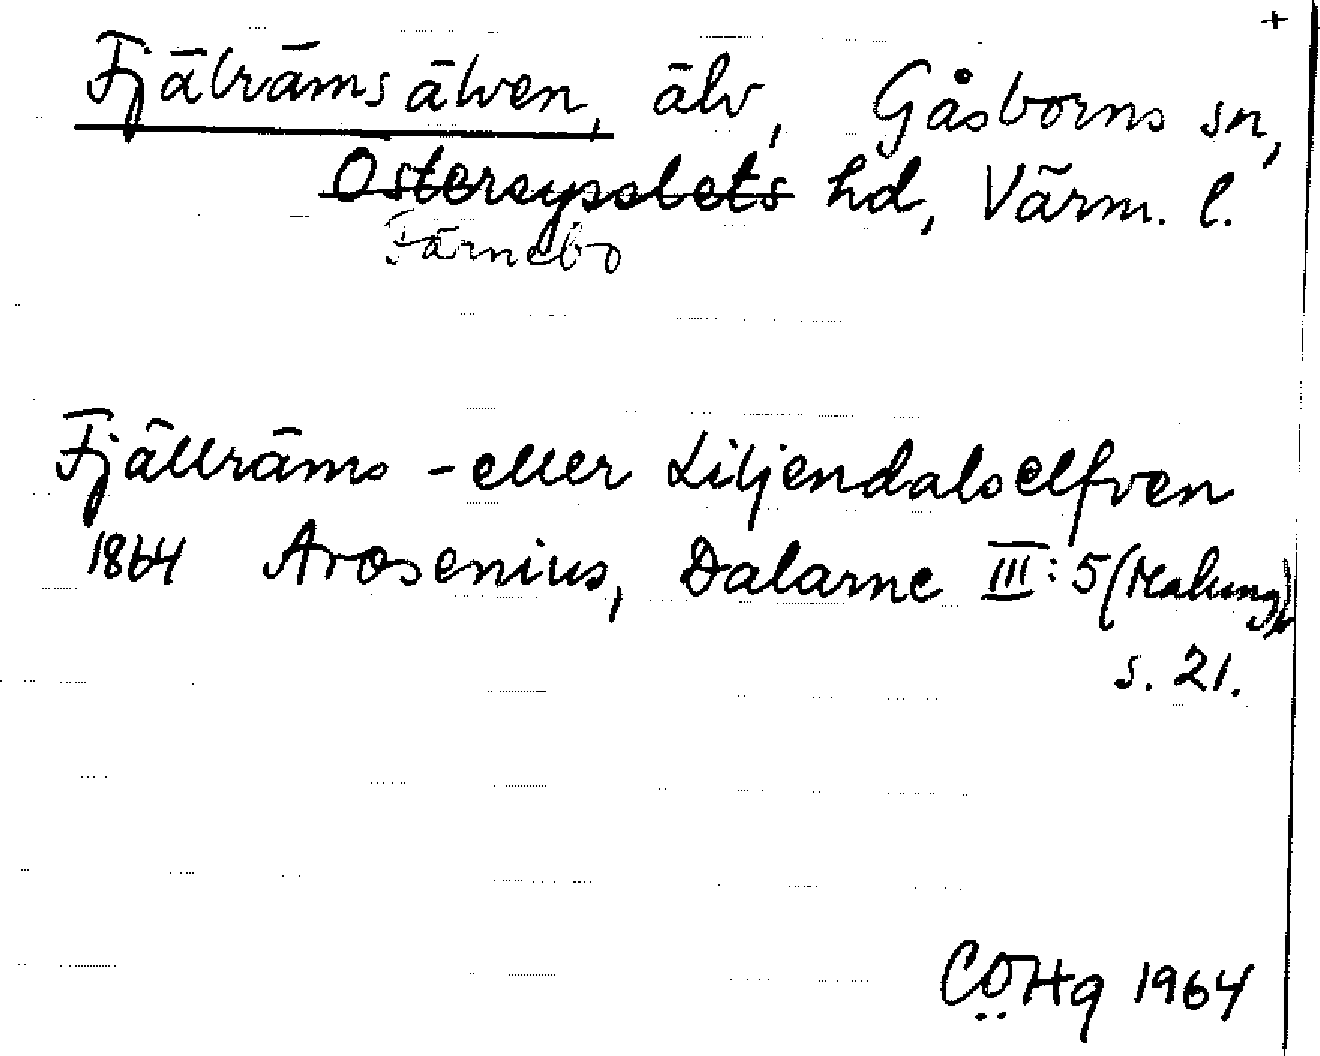 +
Fjälrämsälven, älv, Gåsborns sn,
Ostersysslets hd, Värm. l.
Färnebo
Fjällräms - eller Liljendalselfven
1864 Arosenius, Dalarne III:5 (Malung)
s. 21.
CÖHq 1964